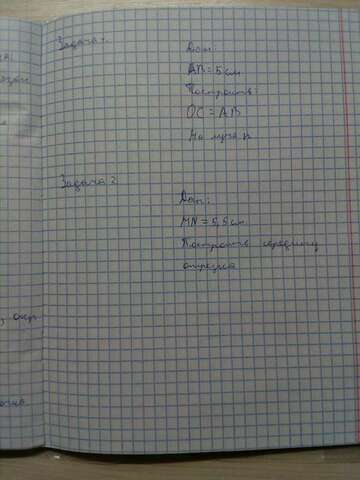 Задача 1
Дан
AB = 5 см
Построить:
OC = AB
На луче
Задача 2
Дан:
MN = 5,5 см
Построить середину
отрезка